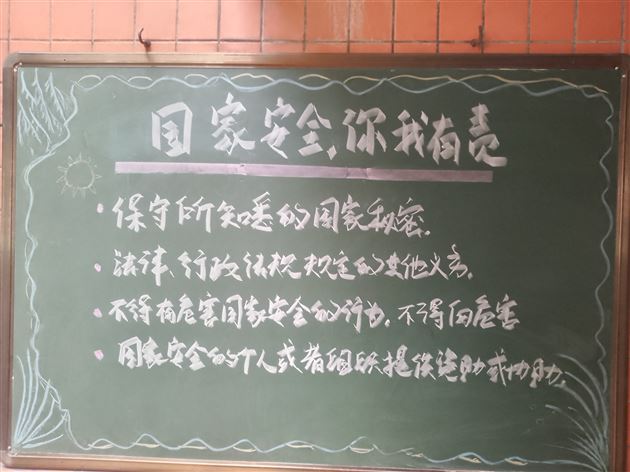 国家安全,你我有责
·保守所知悉的国家秘密.
·法律、行政法规规定的其他义务.
·不得有危害国家安全的行为,不得向危害
·国家安全的个人或者组织提供资助或协助.